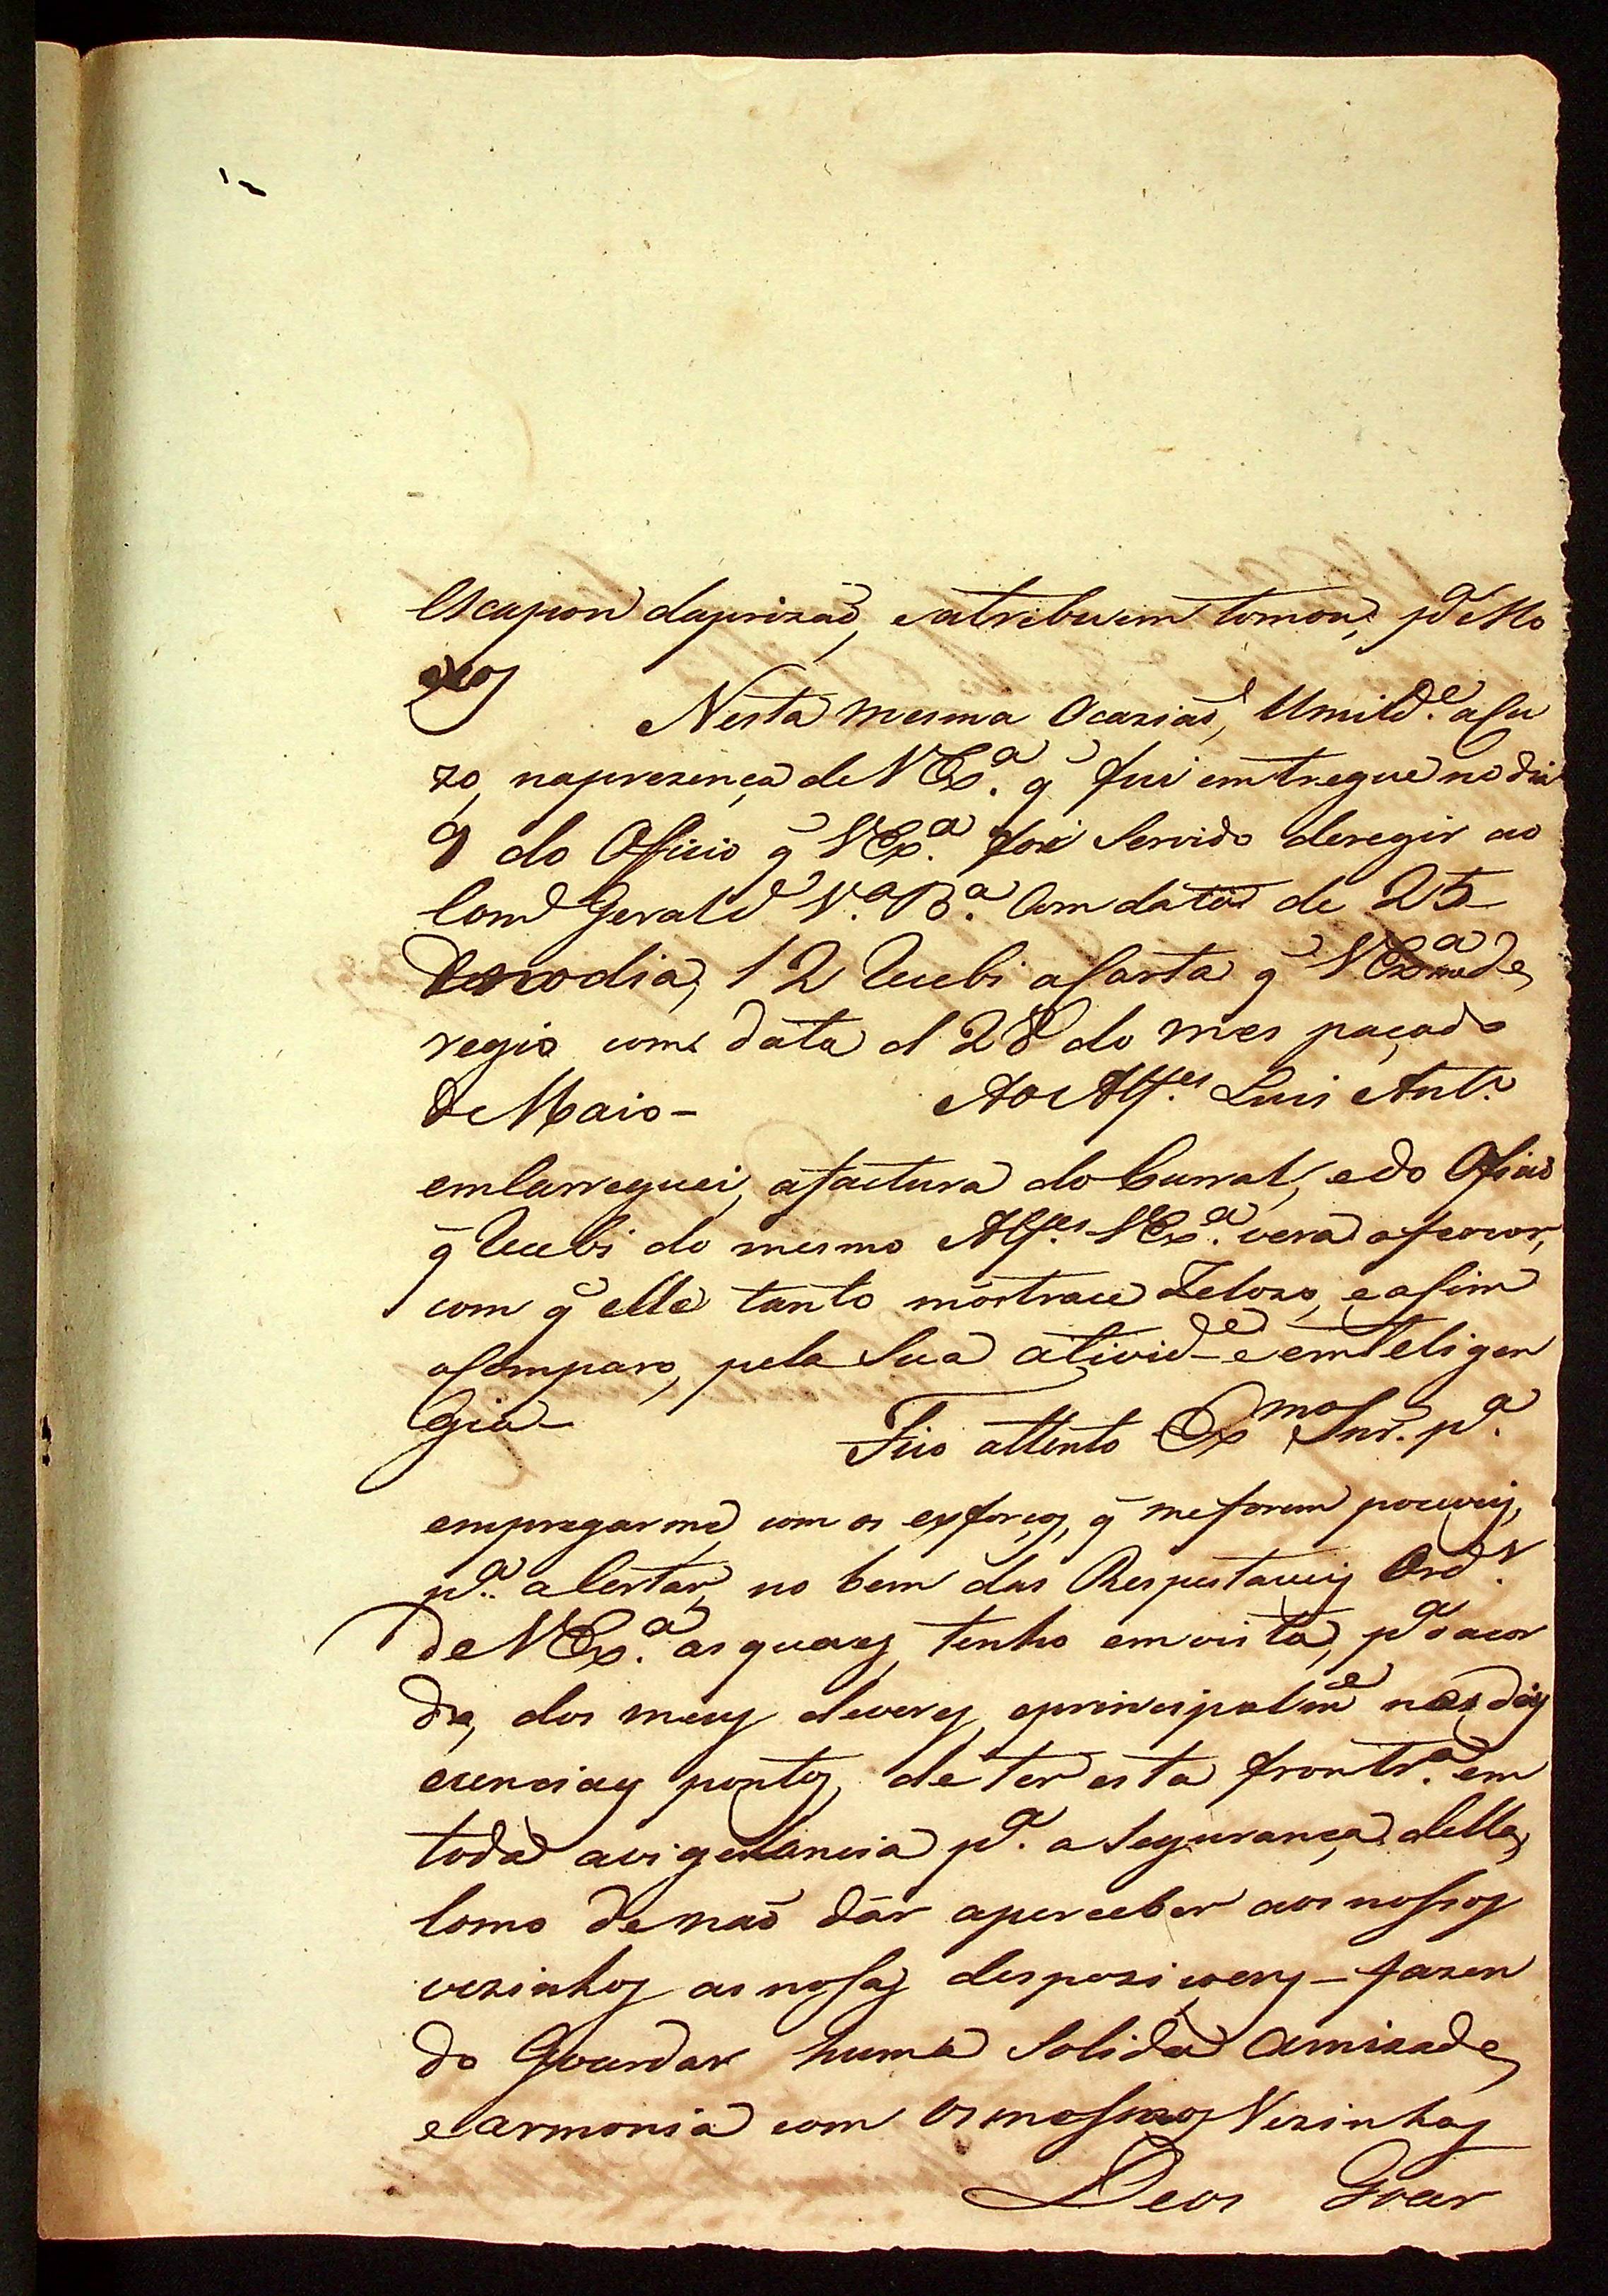 escapou daprizaõ, eatribuem tomou, pª Mo
xos
Nesta mesma Ocaziaõ, Umilde. acu
zo, naprezença de VExª. q̃ fui emtregue no dia
9 do Officio q̃ VExª. foi Servido deregir ao
Comd Geral d Vª. Bª. Com data de 25
eno dia, 12 Recebi acarta q̃ VExª me de
regio com data d 28 do mes paçado
de Maio -
Ao Alfes. Luis Antº.
emCarreguei, afactura do Curral, edo Oficio
q̃ Recebi do mesmo Alfes. VExª. verá ofervor,
com q̃ elle tanto mostrace Zelozo, easim
oComparo, pela Sua ativide e emteligen
Cia -
Fico attento Exmo Snr. pª.
empregarme com os exforços, q̃ meforem pociveis,
pª. aCertar, no bem das Respeitaveis Ords.
de VExª. as quaes, tenho emvista, pª oacor
do, dos meus deveres, eprincipalme nos dois
eCenciaes pontos, de ter esta frontrª. em
toda avigelancia pª. a Segurança della,
Como de naõ dár aperceber aos nossos
vezinhos as nosas despoziçoens - fazen
do Guardar huma Solida Amizade,
earmonia com os mesmos Vezinhos
Deos Goar